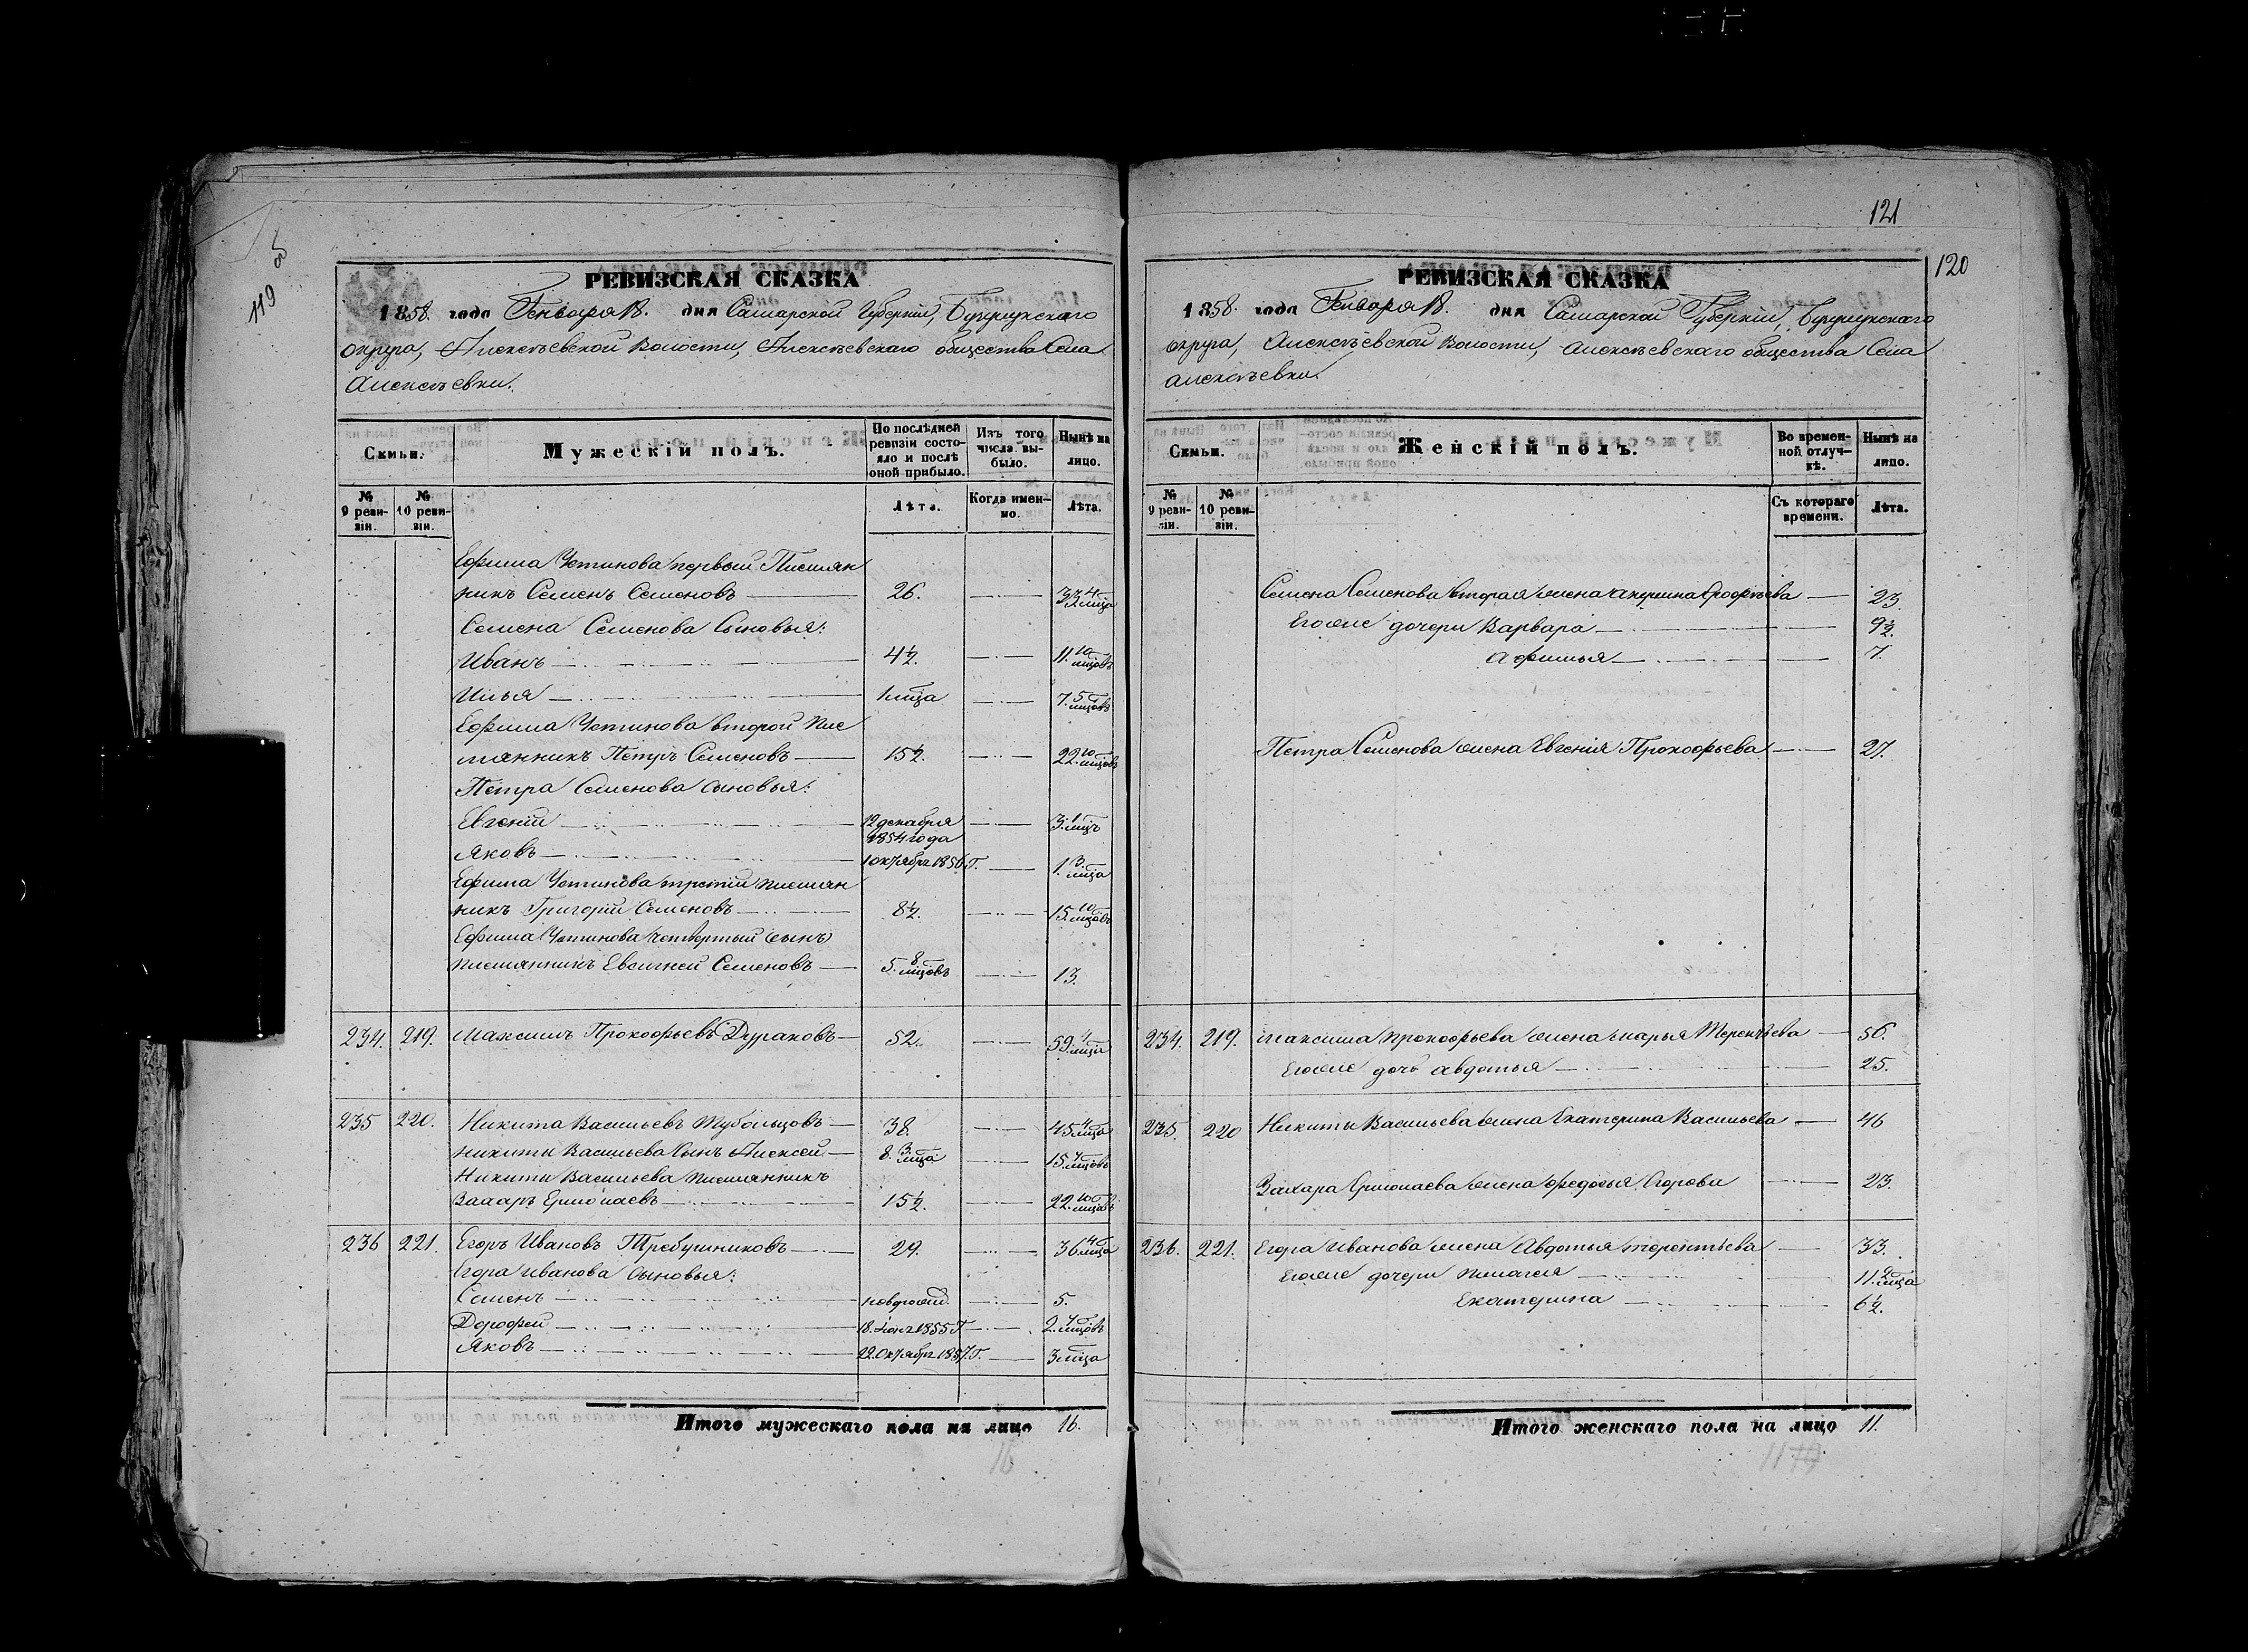 119 об
РЕВИЗСКАЯ СКАЗКА
1858. года Генваря 18. дня Самарской Губерніи, Бузулукскаго
округа, Алексѣевской Волости, Алексѣевскаго общества Села
Алексѣевки.
Семьи.
Мужескій полъ.
По послѣдней ревизіи состояло и послѣ оной прибыло.
Изъ того числа выбыло.
Нынѣ на лицо.
№ 9 ревизіи.
№ 10 ревизіи.
Лѣта.
Когда именно.
Лѣта.
Ефима Устинова первый Племян
никъ Семенъ Семеновъ 26. 33. 4 мѣца
Семена Семенова Сыновья:
Иванъ 4½. 11. 10 мѣцовъ
Илья 1 мѣца 7. 5 мѣцовъ
Ефима Устинова второй Пле
мянникъ Петръ Семеновъ 15½. 22. 10 мѣцовъ
Петра Семенова сыновья:
Евгеній 12 декабря 1854 года 3. 1 мѣцъ
Яковъ 1 октябр 1856 Г. 1. 3. мѣца
Ефима Устинова третій племян
никъ Григорій Семеновъ 8½. 15. 10 мѣцовъ
Ефима Устинова четвертый сынъ
племянникъ Евсигней Семеновъ 5. 8 мѣцовъ 13.
234. 219. Максимъ Прокофьевъ Дураковъ 52. 59. 4 мѣца
235 220. Никита Васильевъ Тубольцовъ 38. 45. 4 мѣца
Никиты Васильева Сынъ Алексей 8. 3. мѣца 15. 7 мѣцовъ
Никиты Васильева племянникъ
Захаръ Ермолаевъ 15½. 22. 10 мѣцовъ
236 221. Егоръ Ивановъ Требушниковъ 29. 36. 4 мѣца
Егора Иванова сыновья:
Семенъ новорожд. 5.
Дорофей 18. 1855 Г 2. 7 мѣцовъ
Яковъ 22 Октябр 1857. Г. 3 мѣца
Итого мужескаго пола на лицо 16.
16
121
120
РЕВИЗСКАЯ СКАЗКА
1858. года Генваря 18. дня Самарской Губерніи, Бузулукскаго
округа, Алексѣевской Волости, Алексѣевскаго общества Села
Алексѣевки.
Семьи.
Женскій полъ.
Во временной отлучкѣ.
Нынѣ на лицо.
№ 9 ревизіи.
№ 10 ревизіи.
Съ котораго времени.
Лѣта.
Семена Семенова вторая жена Акулина Ерофѣева 23.
Егоже дочери Варвара 9½.
Афимья 7.
Петра Семенова жена Евгенія Прокофьева 27.
234. 219. Максима Прокофьева жена Марья Терентьева 56.
Егоже дочь Авдотья 25.
235. 220 Никиты Васильева жена Екатерина Васильева 46
Захара Ермолаева жена Федосья Егорова 23.
236. 221. Егора Иванова жена Авдотья Терентьева 33.
Егоже дочери Пелагея 11. 2 мѣца
Екатерина 6½.
Итого женскаго пола на лицо 11.
11